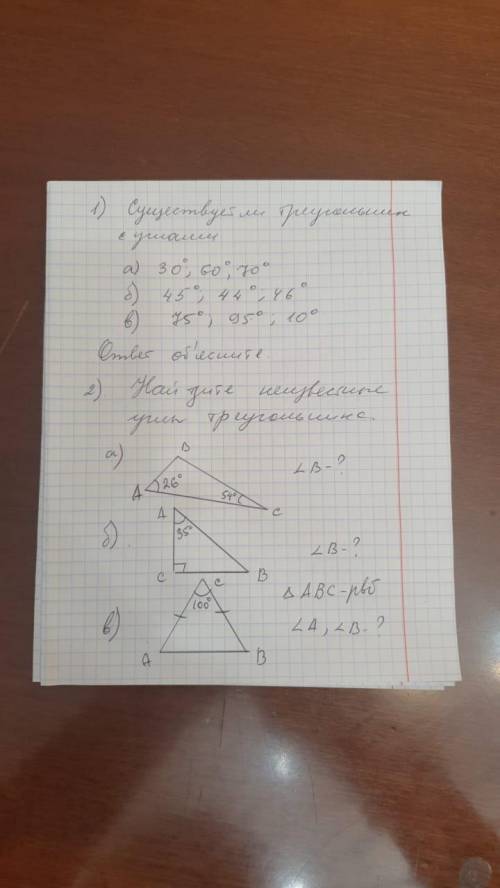 1) Существует ли треугольник
с углами
а) 30°, 60°, 70°
б) 45°; 44°, 46°
в) 75°; 95°; 10°
Ответ объясните.
2) Найдите неизвестные
углы треугольника.
а) B
∠B - ?
A 26° 54° C
A
35°
б)
∠B - ?
C B
C
△ABC - рвб
100°
в)
∠A, ∠B - ?
A B